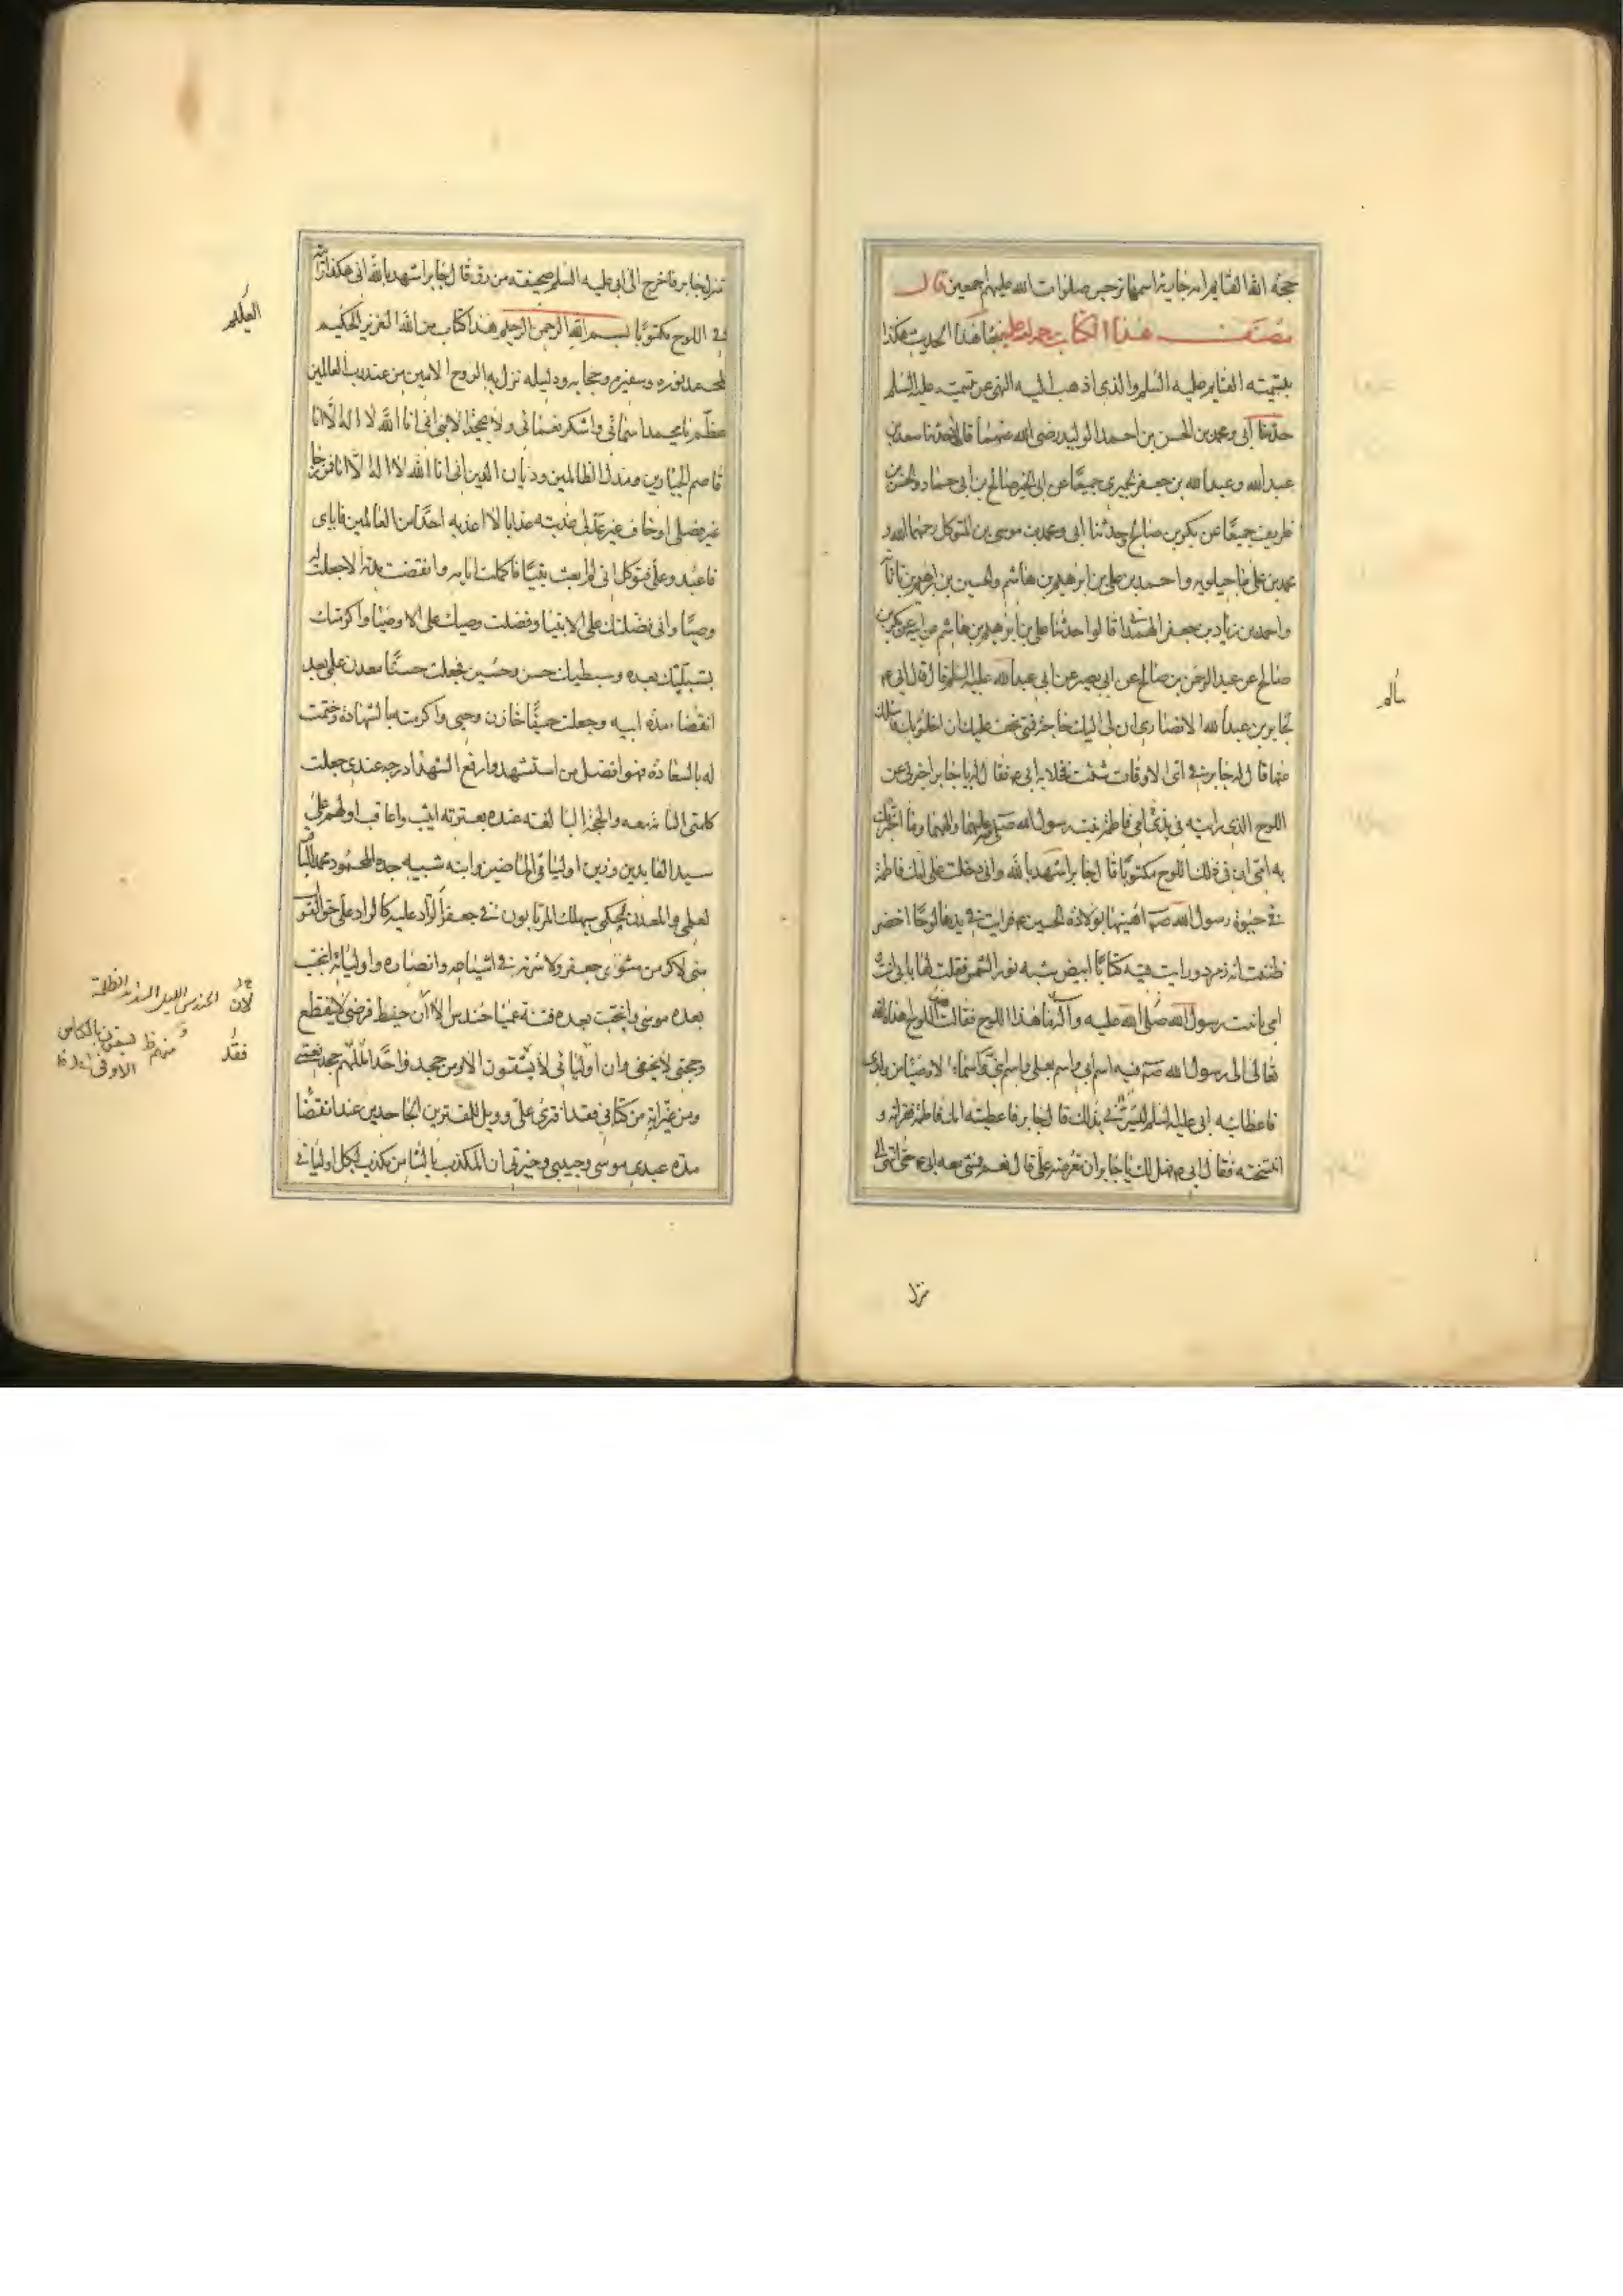 حجة الله القايم امه جارية اسمها نرجس صلوات الله عليهم اجمعين قال
مصنف هذا الكتاب رحمة الله عليه جاء هذا الحديث هكذا
بتسمية القايم عليه السلم والذي اذهب اليه النهي عن تسميته عليه السلم
حدثنا ابى ومحمد بن الحسن بن احمد الوليد رضى الله عنهما قالا حدثنا سعد بن
عبد الله وعبد الله بن جعفر الحميرى جميعًا عن ابى الخير صالح بن ابى حماد والحسن بن
طريف جميعًا عن بكر بن صالح وحدثنا ابى ومحمد بن موسى بن المتوكل رحمهما الله و
محمد بن على ماجيلويه واحمد بن على بن ابرهيم بن هاشم والحسين بن ابرهيم بن ناتانه
واحمد بن زياد بن جعفر الهمدانى قالوا حدثنا على بن ابرهيم بن هاشم عن ابيه عن بكر بن
صالح عن عبد الرحمن بن صالح عن ابى بصير عن ابى عبد الله عليه السلم قال قال ابى ع
لجابر بن عبد الله الانصارى ان لى اليك حاجة فمتى يخف عليك ان اخلو بك فاسئلك
عنها قال له جابر في اى الاوقات شئت فخلا به ابى ع فقال له يا جابر اخبرنى عن
اللوح الذى رايته فى يدى امى فاطمة بنت رسول الله صلى الله عليهما والهما وما اخبرتك
به امى ان فى ذلك اللوح مكتوبًا قال جابر اشهد بالله وانى دخلت على امك فاطمة
في حيوة رسول الله صم اهنيها بولادة الحسين ع فرايت في يدها لوحًا اخضر
ظننت انه زمرد ورايت فيه كتابًا ابيض شبه نور الشمس فقلت لها بابى انت
امى يا بنت رسول الله صلى الله عليه وآله ما هذا اللوح فقالت هذا اللوح اهداه الله
تعالى الى رسول الله صم فيه اسم ابى واسم بعلى واسم ابنى واسماء الاوصيا من ولدى
فاعطانيه ابى عليه السلم ليسرنى بذلك قال جابر فاعطتنيه امك فاطمة فقراته و
انتسخته فقال ابى ع فهل لك يا جابر ان تعرضه على قال نعم فمشى معه ابى ع حتى انتهى الى
سالم
نزل
منزل جابر فاخرج الى ابى عليه السلم صحيفة من رق قال جابر اشهد بالله انى هكذا رايته
في اللوح مكتوبًا بسم الله الرحمن الرحيم هذا كتاب من الله العزيز الحكيم
لمحمد نوره وسفيره وحجابه ودليله نزل به الروح الامين من عند رب العالمين
عظم يا محمد اسمائى واشكر نعمائى ولا تجحد الائى انى انا الله لا اله الا انا
قاصم الجبارين ومذل الظالمين وديان الدين انى انا الله لا اله الا انا فمن رجا
غير فضلى او خاف غير عدلى عذبته عذابا لا اعذبه احدًا من العالمين فاياى
فاعبد وعلى فتوكل انى لم ابعث نبيًا فاكملت ايامه وانقضت مدته الا جعلت له
وصيًا وانى فضلتك على الانبيا وفضلت وصيك على الاوصيا واكرمتك
بشبليك بعده وسبطيك حسن وحسين فجعلت حسنًا معدن علمى بعد
انقضاء مدة ابيه وجعلت حسينًا خازن وحيى واكرمته بالشهادة وختمت
له بالسعادة فهو افضل من استشهد وارفع الشهدا درجة عندى جعلت
كلمتى التامة معه والحجة البالغة عنده بعترته اثيب واعاقب اولهم على
سيد العابدين وزين اوليائى الماضين وابنه شبيه جده المحمود محمد الباقر
لعلمى والمعدن لحكمى سيهلك المرتابون في جعفر الراد عليه كالراد على حق القول
منى لاكرمن مثوى جعفر ولاسرنه في اشياعه وانصاره واوليائه انتجب
بعده موسى وانتجب بعده فتنة عميا حندس الا ان حفيظ فرضى لا ينقطع
وحجتى لا تخفى وان اوليائى لا يشقون الا ومن جحد واحدًا منهم جحد نعمتى
ومن غير اية من كتابى فقد افترى على وويل للمفترين الجاحدين عند انقضا
مدة عبدى موسى وحبيبى وخيرتى ان المكذب بالثامن مكذب بكل اوليائى
العليم
لان
الحندس الليل الشديد الظلمة
فقد